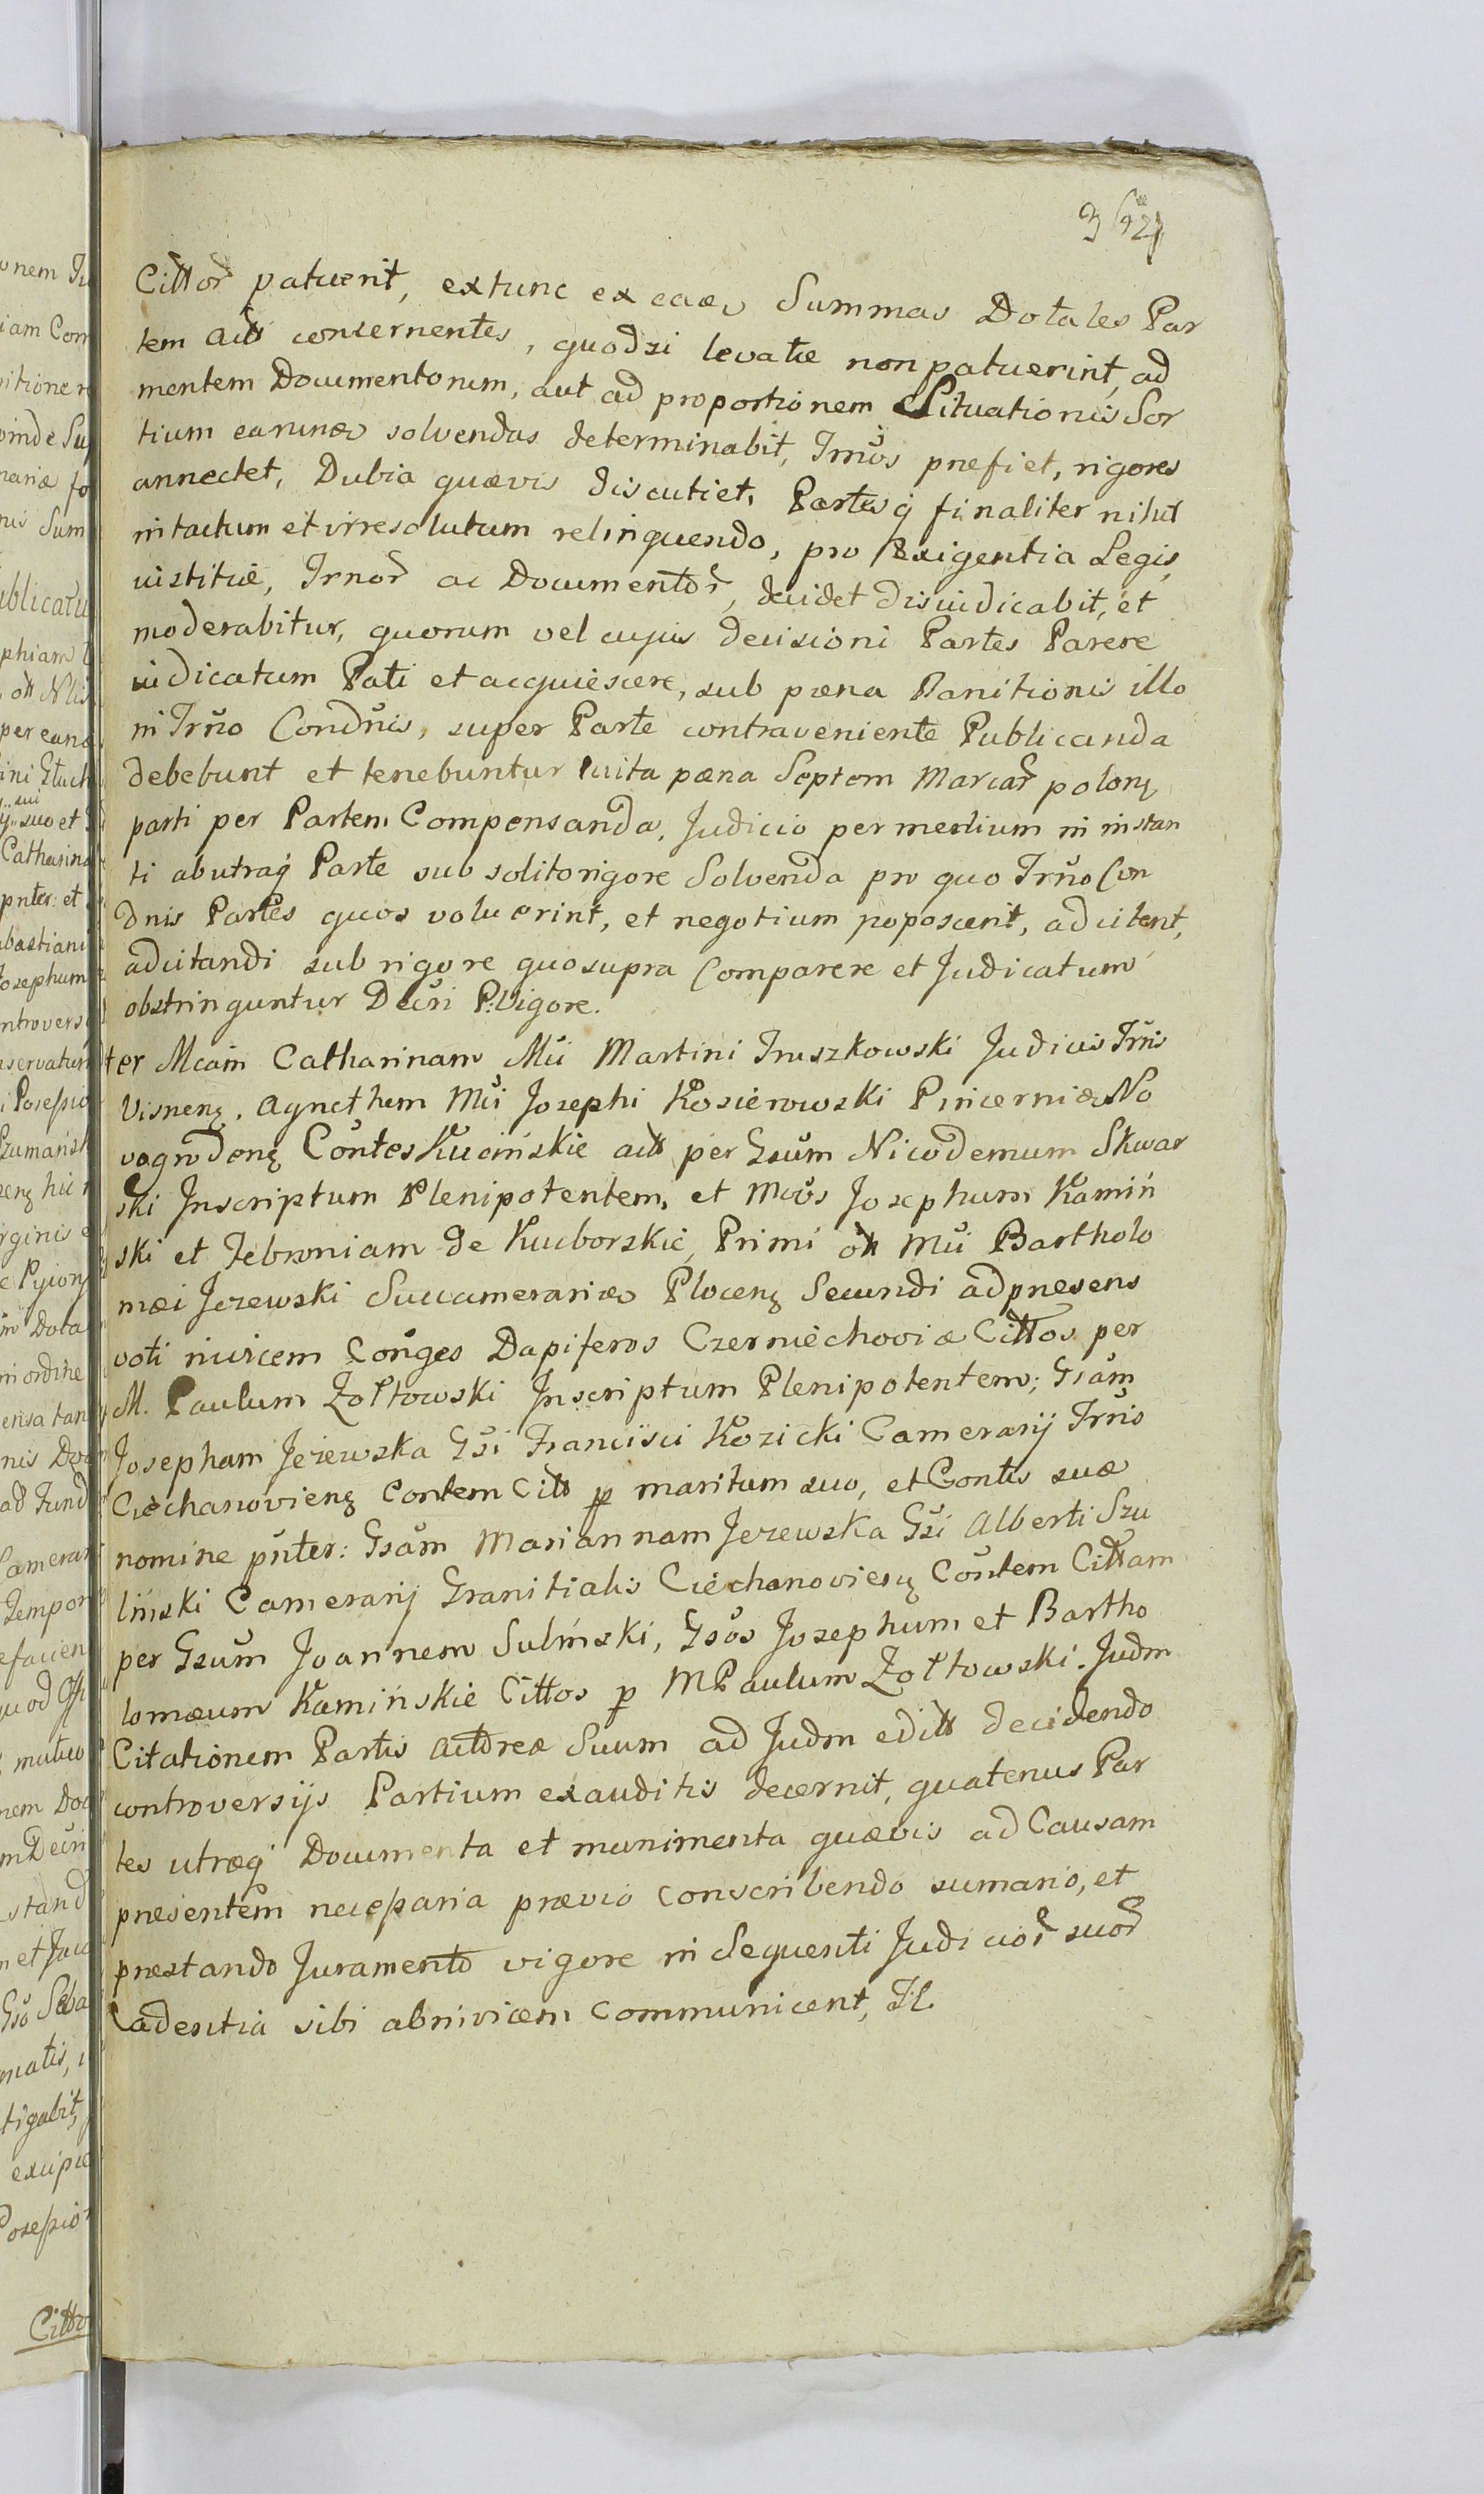 Cittor patuerit, extunc ex eade Summas Dotales Par
tem Actt concernentes, quodsi levatæ non patuerint, ad
mentem Documentorum, aut ad proportionem Situationis Sor
tium earunde solvendas determinabit, Trnos præfiet, rigores
annectet, Dubia quævis discutiet, Partesq finaliter nihil
intactum et irresolutum relinquendo, pro Exigentia Legis,
iustitiæ, Trnor ac Documentor, decidet disiudicabit, et
moderabitur, quorum vel cujus decisioni Partes Parere
iudicatum Pati et acquiescere, sub pæna Banitionis illo
in Trno Condnis, super Parte contraveniente Publicanda
debebunt et tenebuntur luita pæna Septem Marcar polonę
parti per Partem Compensanda, Judicio per medium in instan
ti ab utraq Parte sub solito rigore Solvenda pro quo Trno Con
dnis Partes quos voluerint, et negotium poposcerit, adcitent,
adcitandi sub rigore quo supra Comparere et Judicatum
obstringuntur Decri P. Vigore.
ter Mcam Catharinam Mci Martini Truszkowski Judicis Trris
Visnenę, Agnethem Mci Josephi Kosierowski Pincernia No
vogrodenę Contes Kucinskie actt per Gsum Nicodemum Skwar
ski Inscriptum Plenipotentem, et Mcos Josephum Kamiń
ski et Febroniam de Kuiborskie, Primi ott Mci Bartholo
mæi Jezewski Succamerariæ Plocenę Secundi ad præsens
voti invicem Conges Dapiferos Czerniechoviæ Cittos per
M. Paulum Zołtowski Inscriptum Plenipotentem; Gsam
Josepham Jeżewska Gsi Francisci Kozicki Camerarij Trris
Ciechanovienę Contem Citt p maritum suo, et Contis suæ
nomine pnter: Gsam Mariannam Jezewska Gsi Alberti Szu
liński Camerarij Granitialis Ciechanovienę Contem Cittam
per Gsum Joannem Suliński, Gsos Josephum et Bartho
lomæum Kamińskie Cittos p M Paulum Zołtowski. Judm
Citationem Partis Actoreæ Suum ad Judm editt decidendo
controversijs Partium exauditis decernit, quatenus Par
tes utræq Documenta et munimenta quævis ad Causam
præsentem necessaria prævio conscribendo sumario, et
præstando Juramento vigore in Sequenti Judicior suor
Cadentia sibi abinvicem Communicent, Il